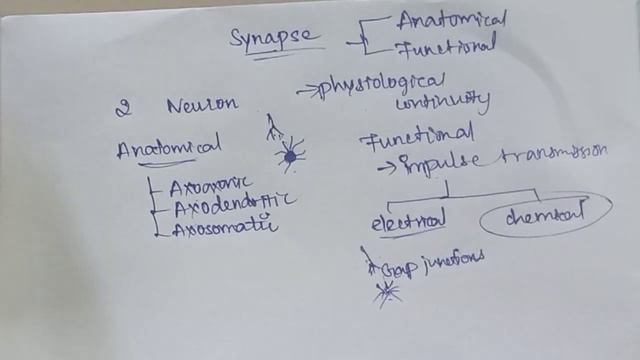 Synapse
Anatomical
Functional
2 Neuron
→ physiological
continuity
Anatomical
Axoaxonic
Axodendritic
Axosomatic
Functional
→ impulse transmission
electrical
chemical
Gap junctions